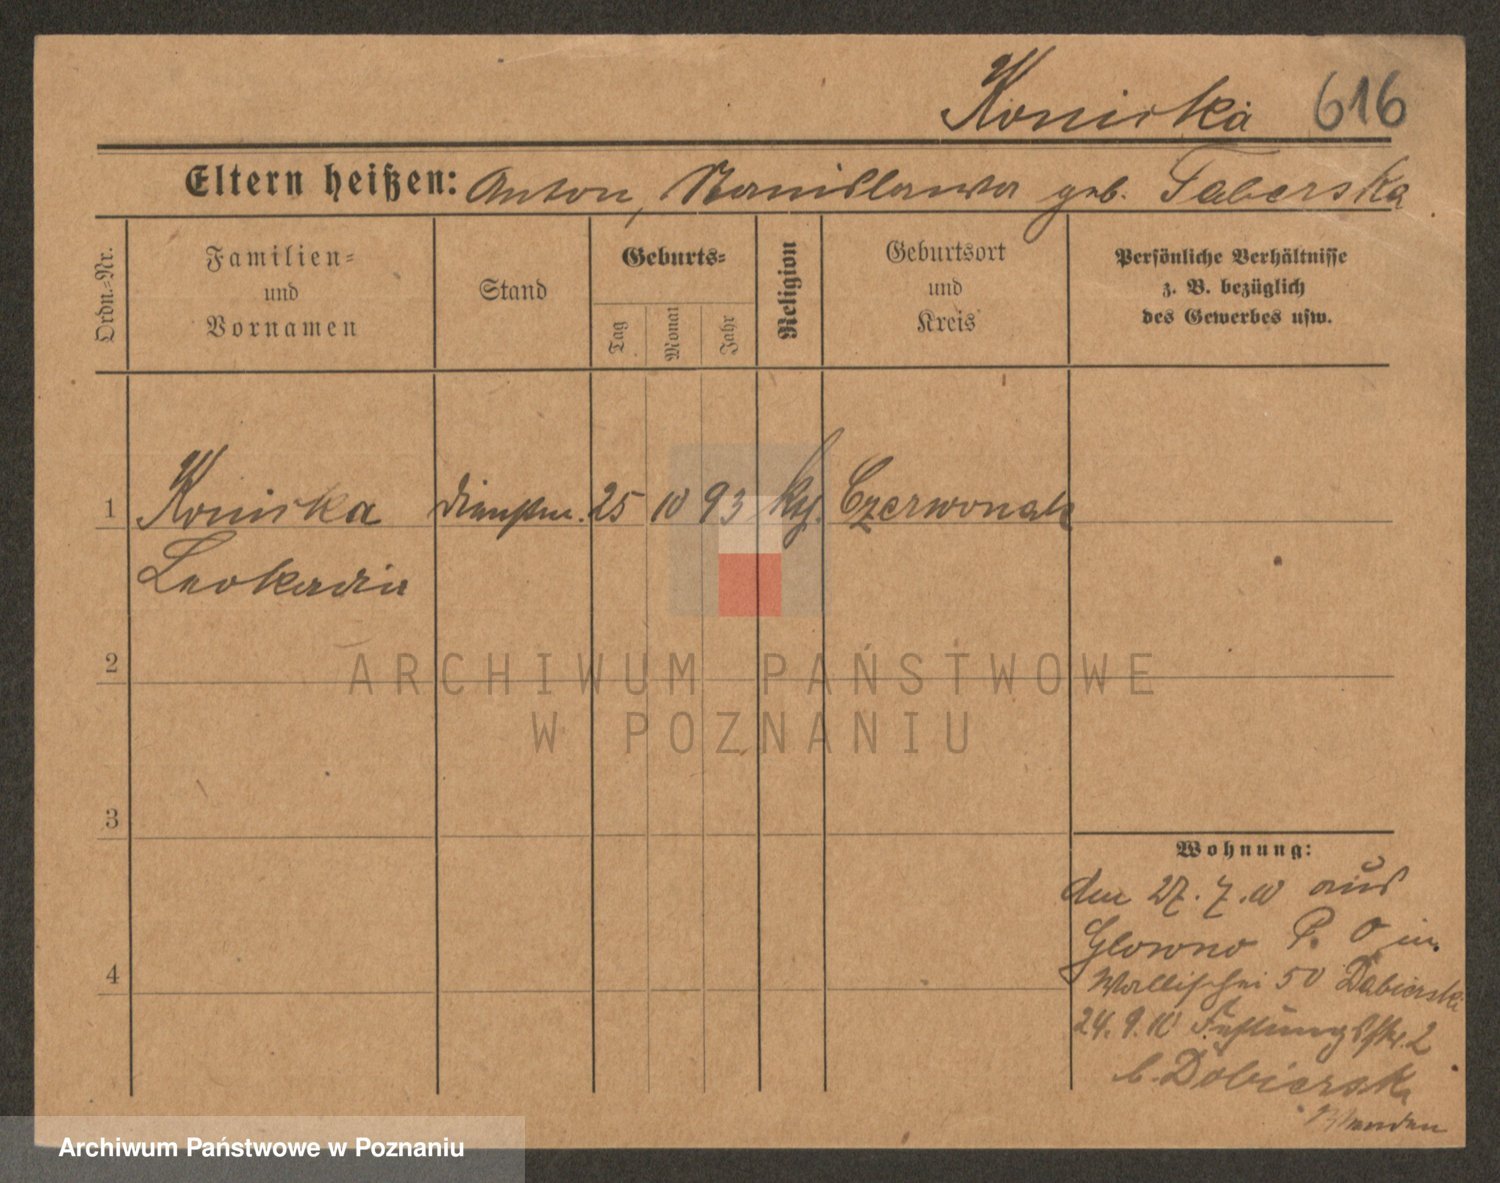 Koniska 616
Eltern heißen: Anton, Stanislawa geb. Taberska
Ordn.-Nr.
Familien-
und
Vornamen
Stand
Geburts-
Tag
Monat
Jahr
Religion
Geburtsort
und
Kreis
Persönliche Verhältnisse
z. B. bezüglich
des Gewerbes usw.
1 Koniska 25 10 93 Czerwonak
Leokadia
2
ARCHIWUM PAŃSTWOWE
W POZNANIU
3
Wohnung:
den 27.7.10 aus
Glowno P. O in
4
Wallischei 50 Dabierski
24.9.10 Festungsstr. 2
b. Dobierski
Archiwum Państwowe w Poznaniu